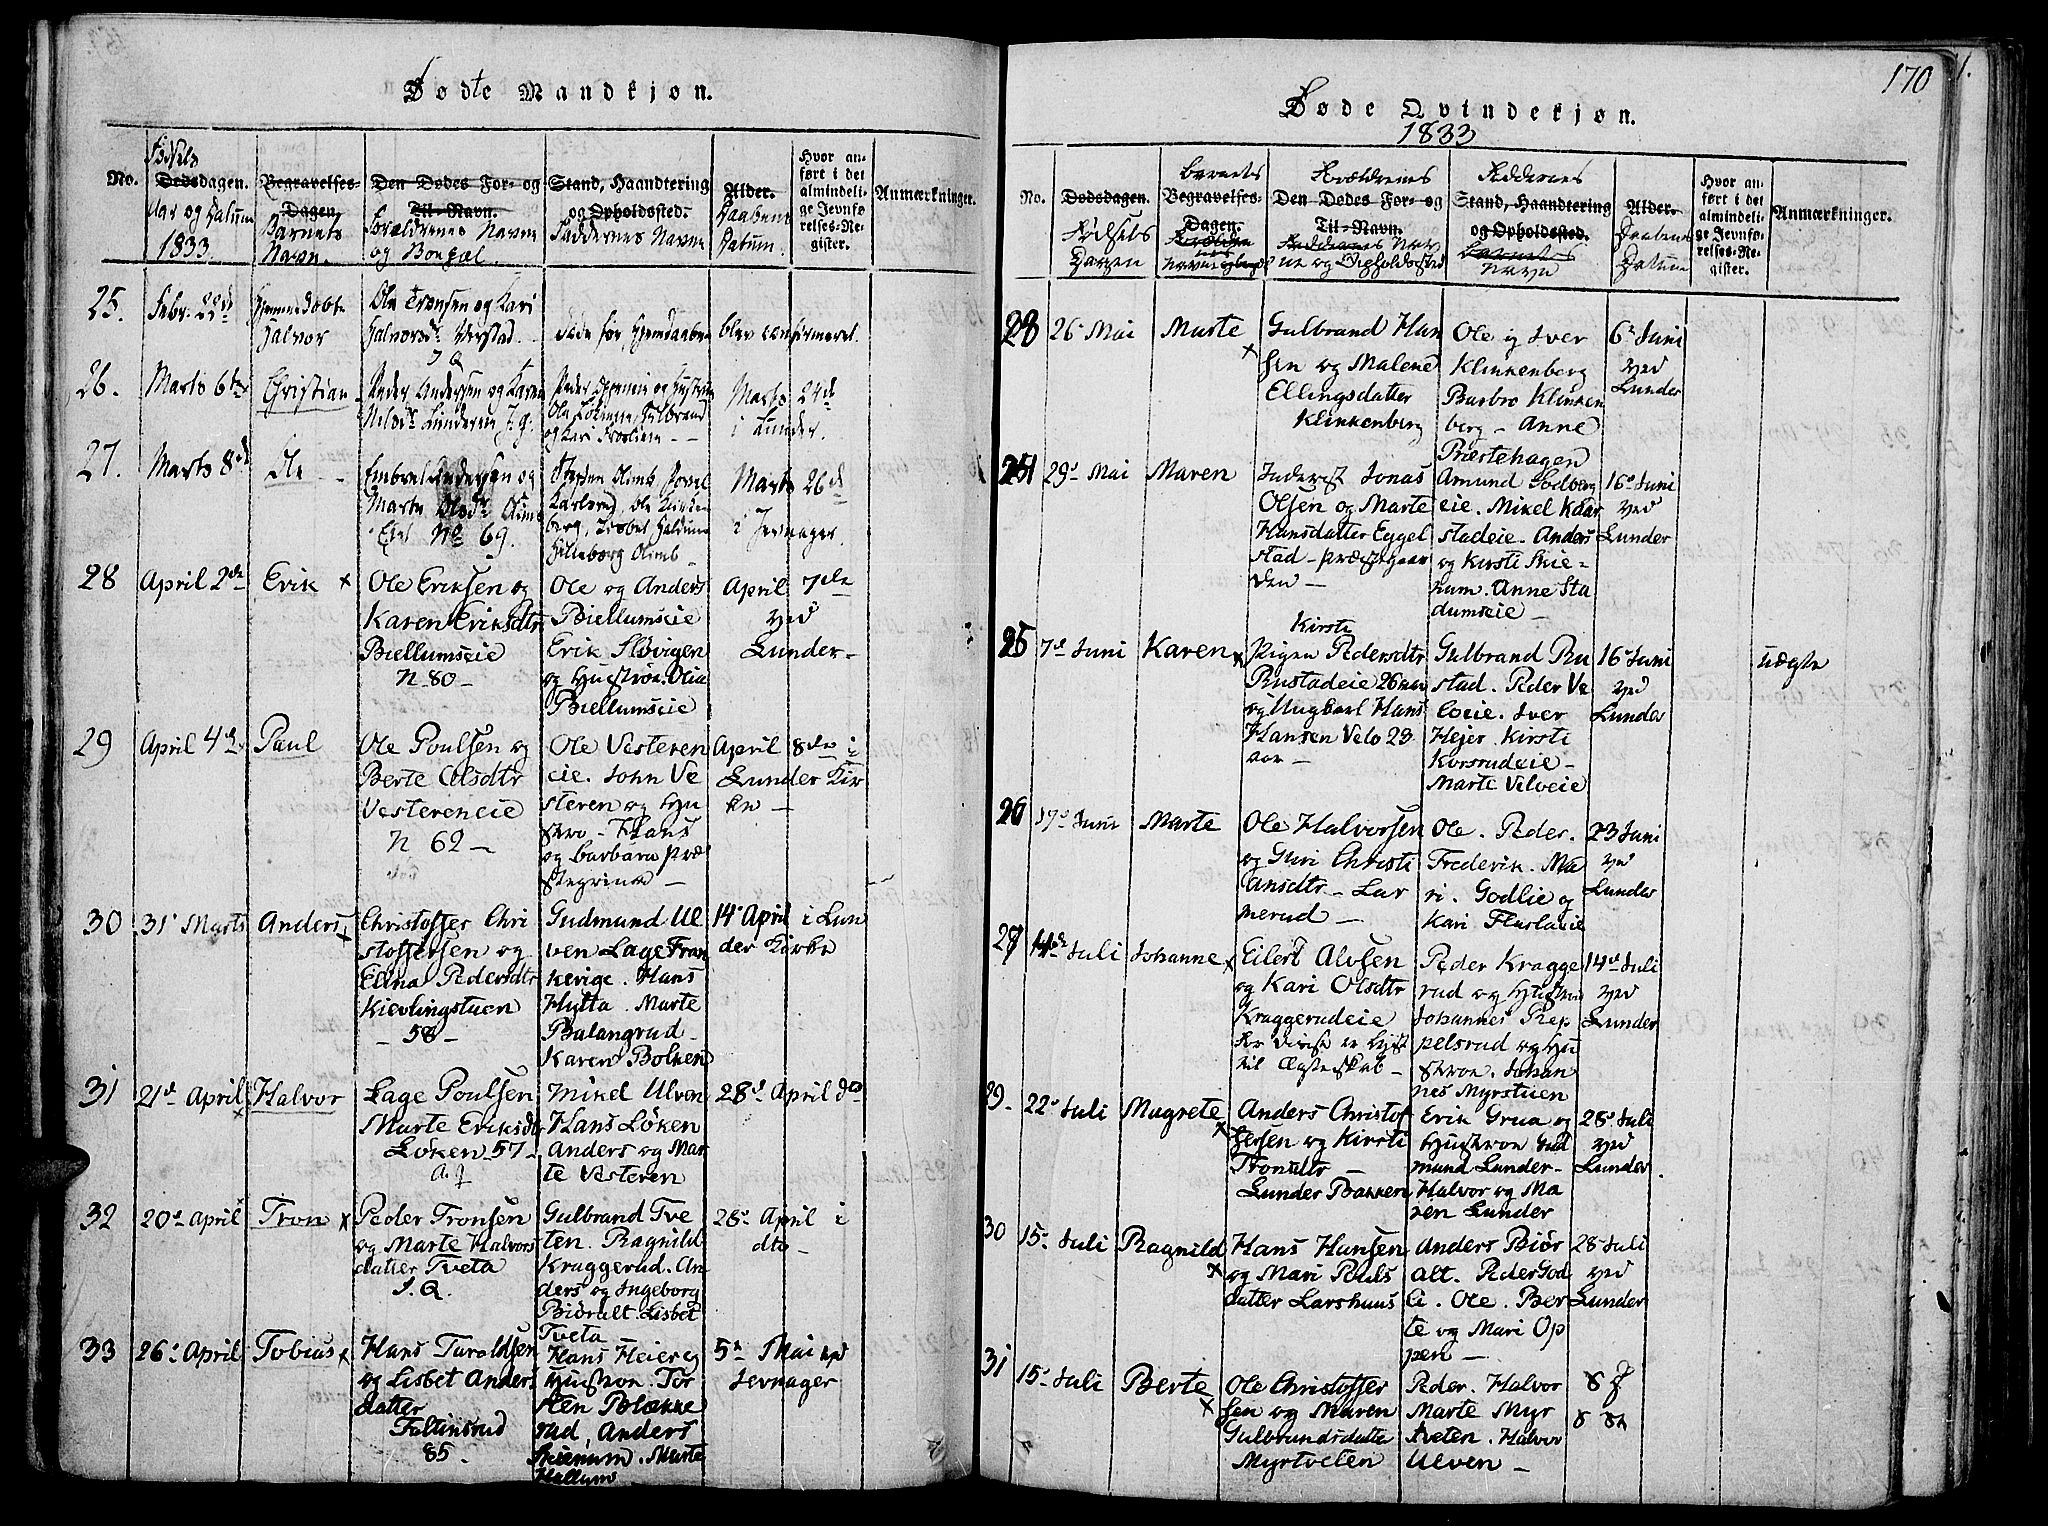 Fødte Mandkjøn.
No.
Fødsels
Dødsdagen.
Aar og Datum
1833.
Begravelses-
Dagen.
Barnets
Navn.
Den Dødes For- og
Til-Navn.
Forældrenes Navne
og Bopæl.
Stand, Haandtering
og Opholdssted.
Faddernes Navne
Alder.
Daabens
Datum.
Hvor an-
ført i det
almindeli-
ge Jevnfø-
relses-Re-
gister.
Anmærkninger.
25.
Febr. 22de
Hjemmedøbte
Halvor
Ole Tronsen og Kari
Halvorsdr
døde før Hjemdaaben
blev confirmeret.
26.
Marts 6te
Christian
Peder Andersen og Karen
Nilsdr Lunderne
Marts 24de
i Lunder.
27.
Marts 8de
Ole
Embret Andersen og
Marte Olsdr
Eiet No 69.
Marts 26de
i Jevnager.
28
April 2de
Erik ×
Ole Eriksen og
Karen Eriksdtr
Biellumseie
N 80 —
Ole og Anders
Biellumseie
Erik Sløvigen
og Hustrue. Olia
Biellumseie
April 7de
ved
Lunder —
29
April 4de
Paul
Ole Poulsen og
Berte Olsdtr
Vestereneie
N 62 —
Ole Vesteren
eie. John Ve
steren og Hu
stro — Hans
og Barbara Præ
stegrina —
April 8de i
Lunder Kir
ke —
30
31 Marts
Anders
Christoffer Chri
stoffersen og
Elina Pedersdtr
Kievlingstuen
— 58 —
Gudmund Ul
ven Lage Fran
kerige. Hans
Hytta. Marte
Balangrud
Karen Bolken
14 April i Lun
der Kirke
31
21de April
Halvor
Lage Poulsen
Marte Eriksdtr
Løken 57 —
Mikel Ulven
Hans Løken
Anders og Mar
te Vesteren
28de April do
32
20de April
Tron ×
Peder Tronsen
og Marte Halvors
datter Tveta
J. Q.
Gulbrand Tve
ten. Ragnild
Kraggerud. An
ders og Ingeborg
Biøralt. Lisbet
Tveta
28de April i
dto —
33
26 April
Tobias ×
Hans Taraldsen
og Lisbet Anders
datter
Faltinsrud
85 —
Hans Heier og
Hustroe. Tor
sten Blække
rud, Anders
Marte
Hallum
5te Mai ved
Jevnager
170
Døde Qvindekjøn.
1833
No.
Dødsdagen.
Fødsels
Dagen
Barnets
Begravelses-
Dagen.
Forældrenes
Den Dødes For- og
Til-Navn.
Faddernes Nav
ne og Opholdssted
Faddernes
Stand, Haandtering
og Opholdssted.
Barnets
Navn
Alder.
Daabens
Datum
Hvor an-
ført i det
almindeli-
ge Jevnfø-
relses-Re-
gister.
Anmærkninger.
26 Mai
Marte
×
Gulbrand Han
sen og Malene
Ellingsdatter
Klinkenberg
Ole og Iver
Klinkenberg
Barbro Klinken
berg — Anne
Præstehagen
6te Juni
ved
Lunder
29 Mai
Maren
Inderst Jonas
Olsen og Marte
Hansdatter Eggel
stad — Præstegaar
den —
Amund Soelberg
eie. Mikel Kaar
stadeie. Anders
og Kirsti Skie-
rum. Anne Sta
dumseie —
16 Juni
ved
Lunder
25
7de Juni
Karen ×
Kirsti
Pigen Pedersdtr
Rustadeie 26 aar
og Ungkarl Hans
Hansen Velo 23
aar —
Gulbrand Ru
stad. Peder Ve
loeie. Iver
Hejer. Kirsti
Korsrudeie —
Marte Veloeie
16 Juni
ved
Lunder
uægte
26
17 Juni
Marte
Ole Halvorsen
og Guri Christi
ansdtr — Lar
merud —
Ole. Peder.
Frederik. Ma
ri. Godlie og
Kari
23 Juni
ved
Lunder
14de Juli
Johanne ×
Eilert Alvsen
og Kari Olsdtr
Kraggerudeie
for disse er lyst
til Ægteskab —
Peder Kragge
rud og Hustru
Johannes Rep
pelsrud og Hu
stroe. Johan
nes Myrstuen
14de Juli
ved
Lunder
29
22 Juli
Magrete
×
Anders Christof
fersen og Kirsti
Tronsdtr —
Lunder Bakken
Erik Grua og
Hustroe Gud
mund Lunder —
Halvor og Ma
ren Lunder
28 Juli
ved
Lunder
30
15 Juli
Ragnild
×
Hans Hansen
og Mari Pouls
datter Larshuus
Anders Biør
alt. Peder God
li. Ole. Ber
te og Mari Op
pen —
28 Juli
ved
Lunder
31
15 Juli
Berte
×
Ole Christoffer
sen og Maren
Gulbrandsdatter
Myrtveten
Peder. Halvor
Marte Myr
tveten. Halvor
Ulven —